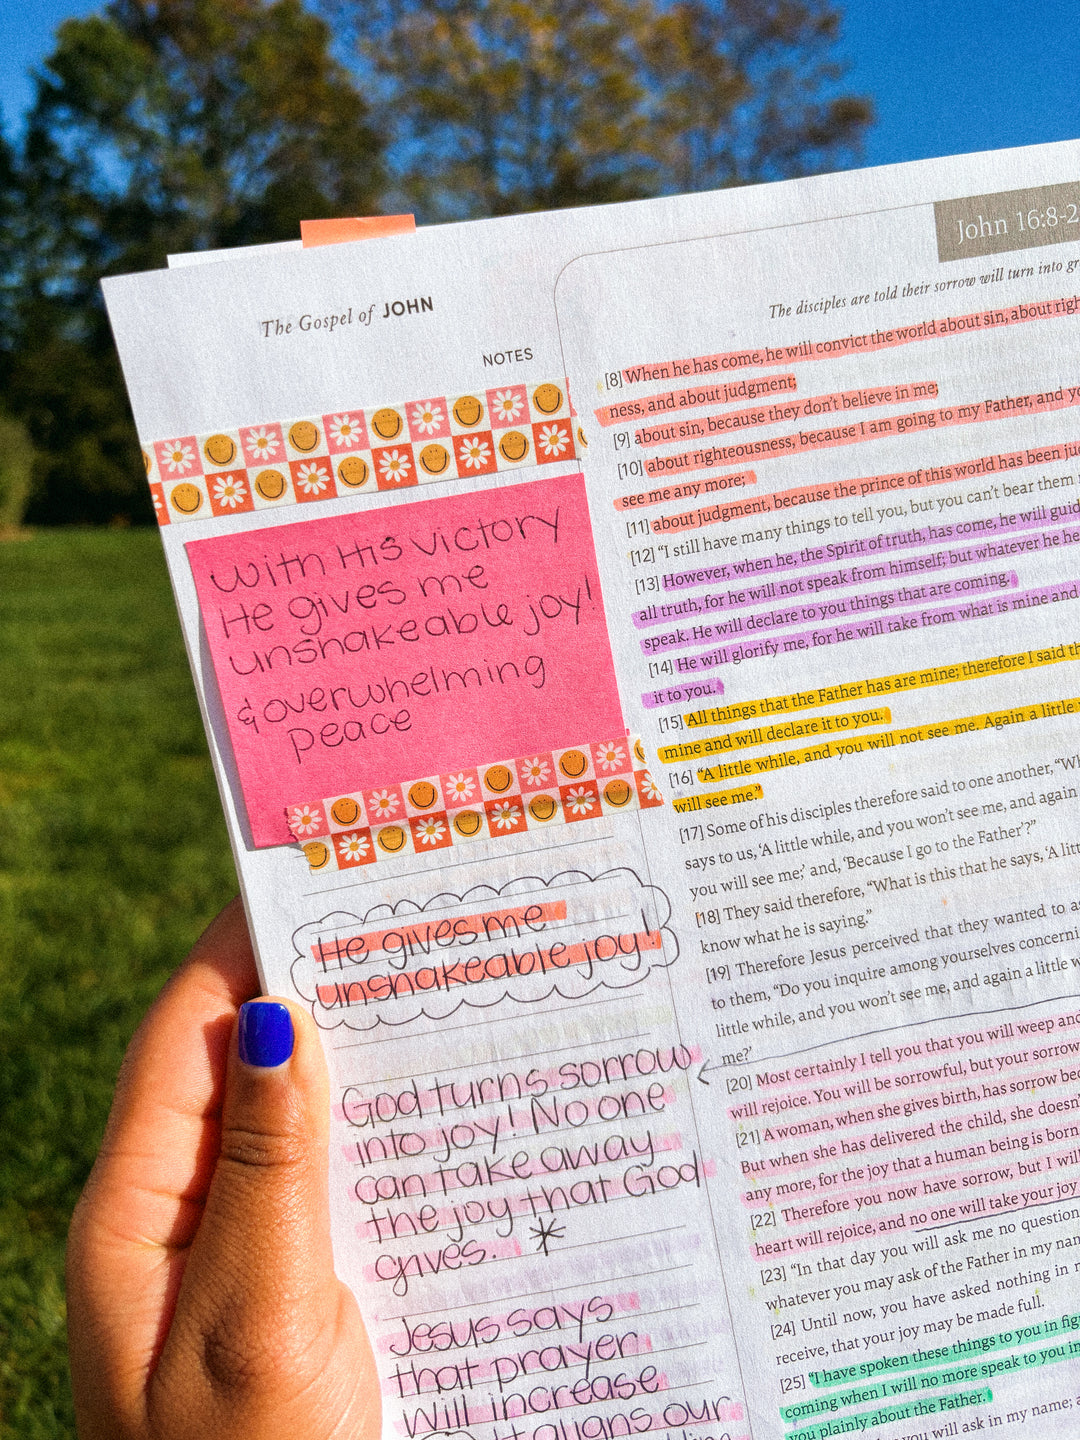 The Gospel of JOHN
NOTES
With His victory
He gives me
unshakeable joy!
& overwhelming
peace
He gives me
unshakeable joy!
God turns sorrow
into joy! No one
can take away
the joy that God
gives. *
Jesus says
that prayer
will increase
It aligns our
John 16:8-2
The disciples are told their sorrow will turn into
[8] When he has come, he will convict the world about sin, about
ness, and about judgment;
[9] about sin, because they don't believe in me;
[10] about righteousness, because I am going to my Father, and
see me any more;
[11] about judgment, because the prince of this world has been
[12] "I still have many things to tell you, but you can't bear them
[13] However, when he, the Spirit of truth, has come, he will
all truth, for he will not speak from himself; but whatever he
speak. He will declare to you things that are coming.
[14] He will glorify me, for he will take from what is mine and
it to you.
[15] All things that the Father has are mine; therefore I said
mine and will declare it to you.
[16] "A little while, and you will not see me. Again a little
will see me."
[17] Some of his disciples therefore said to one another,
says to us, 'A little while, and you won't see me, and again
you will see me;' and, 'Because I go to the Father'?"
[18] They said therefore, "What is this that he says, 'A
know what he is saying."
[19] Therefore Jesus perceived that they wanted to
to them, "Do you inquire among yourselves
little while, and you won't see me, and again a little
me?'
[20] Most certainly I tell you that you will weep and
will rejoice. You will be sorrowful, but your sorrow
[21] A woman, when she gives birth, has sorrow
But when she has delivered the child, she doesn't
any more, for the joy that a human being is born
[22] Therefore you now have sorrow, but I will
heart will rejoice, and no one will take your joy
[23] "In that day you will ask me no
whatever you may ask of the Father in my
[24] Until now, you have asked nothing in
receive, that your joy may be made full.
[25] "I have spoken these things to you in
coming when I will no more speak to you in
you plainly about the Father.
you will ask in my name;